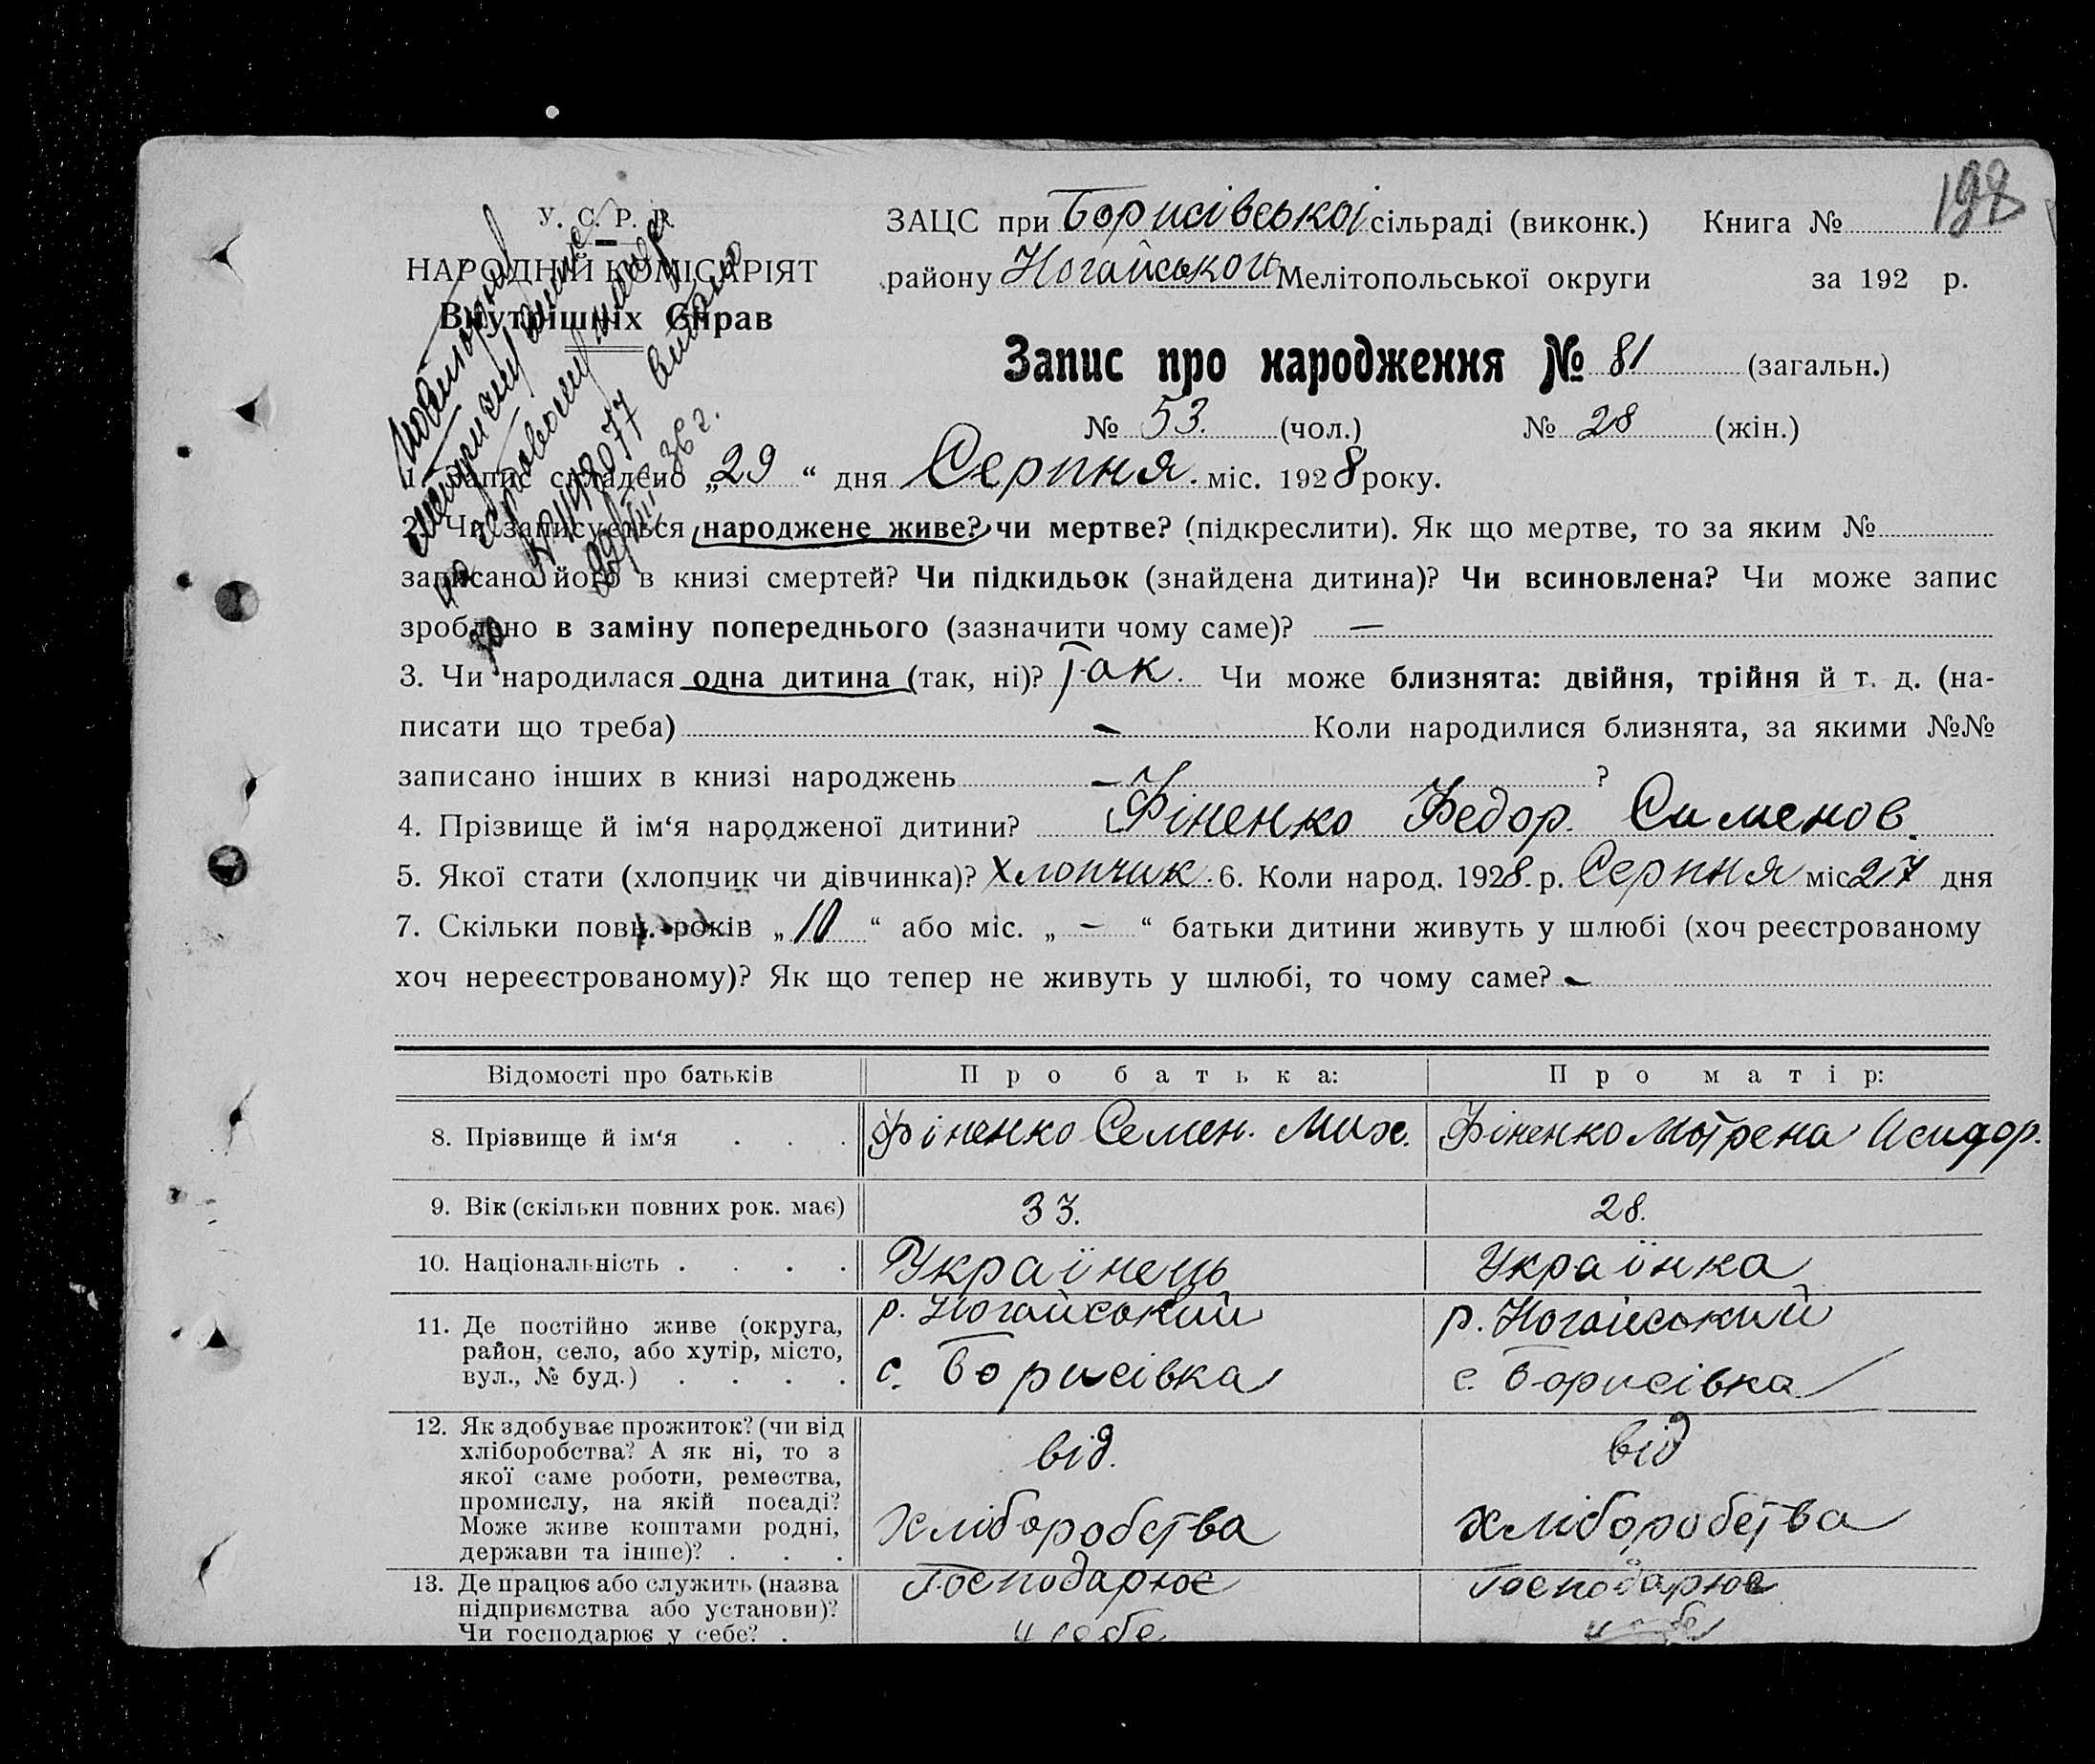 198
У. С. Р. Р.
НАРОДНІЙ КОМІСАРІЯТ
Внутрішніх Справ
ЗАЦС при Борисівської сільраді (виконк.) Книга №
району Ногайської Мелітопольської округи за 192 р.
Запис про народження № 81 (загальн.)
№ 53. (чол.) № 28 (жін.)
видано
36 г.
1. Запис складено „29“ дня Серпня. міс. 1928 року.
2. Чи записується народжене живе? чи мертве? (підкреслити). Як що мертве, то за яким №
записано його в книзі смертей? Чи підкидьок (знайдена дитина)? Чи всиновлена? Чи може запис
зроблено в заміну попереднього (зазначити чому саме)? —
3. Чи народилася одна дитина (так, ні)? Так. Чи може близнята: двійня, трійня й т. д. (на-
писати що треба) — Коли народилися близнята, за якими №№
записано інших в книзі народжень — ?
4. Прізвище й ім‘я народженої дитини? Фіненко Федор. Сименов.
5. Якої стати (хлопчик чи дівчинка)? Хлопчик. 6. Коли народ. 1928. р. Серпня міс 27 дня
7. Скільки повн. років „10“ або міс. „—“ батьки дитини живуть у шлюбі (хоч реєстрованому
хоч нереєстрованому)? Як що тепер не живуть у шлюбі, то чому саме? —
Відомості про батьків Про батька: Про матір:
8. Прізвище й ім‘я . . . Фіненко Семен. Мих. Фіненко Мотрена Исидор.
9. Вік (скільки повних рок. має) 33. 28.
10. Національність . . . . Українець Українка
11. Де постійно живе (округа,
район, село, або хутір, місто,
вул., № буд.) . . . .
р. Ногайський
с. Борисівка
р. Ногайський
с. Борисівка
12. Як здобуває прожиток? (чи від
хліборобства? А як ні, то з
якої саме роботи, ремества,
промислу, на якій посаді?
Може живе коштами родні,
держави та інше)? . . .
від.
Хліборобства
від
хліборобства
13. Де працює або служить (назва
підприємства або установи)?
Чи господарює у себе? .
Господарює
у себе
Господарює
у себе